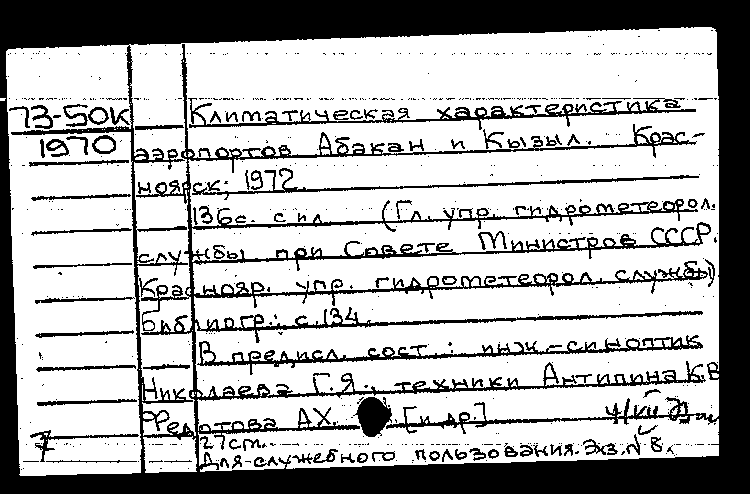 73-50к
1970
Климатическая характеристика
аэропортов Абакан и Кызыл. Крас-
ноярск, 1972.
136с. с ил (Гл. упр. гидрометеорол.
службы при Совете Министров СССР.
Краснояр. упр. гидрометеорол. службы)
Библиогр.: с. 134.
В предисл. сост.: инж.-синоптик
Николаева Г.Я., техники Антипина К.В
Федотова А.Х. [и др]
7
27cm.
Для служебного пользования. Экз. № 8.